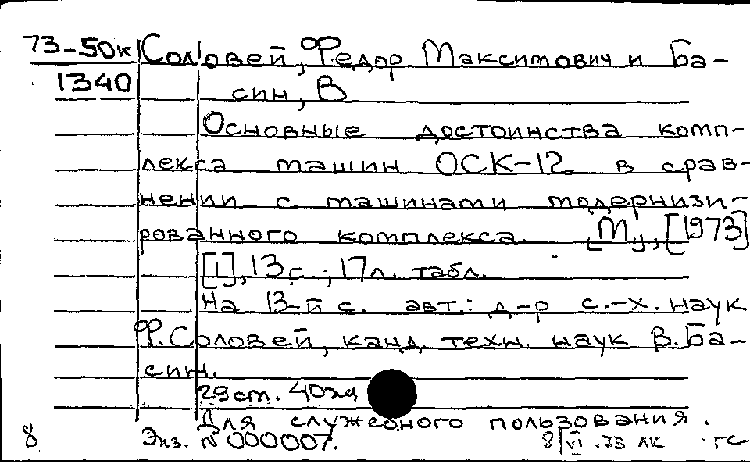 73-50к Соловей, Федор Максимович и Ба-
1340 син, В
Основные достоинства комп-
лекса машин ОСК-12 в срав-
нении с машинами модернизи-
рованного комплекса. [М], [1973]
[1], 13 с.; 17 л. табл.
На 13-й с. авт.: д-р с.-х. наук
Ф. Соловей, канд. техн. наук В. Ба-
син.
29 см. 40 экз
Для служебного пользования.
8 Экз. № 000007. 8/VI.73 ЛК ГС